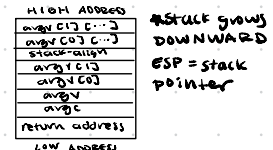 HIGH ADDRESS
argv [1] [...]
argv [0] [...]
stack-align
argv [1]
argv [0]
argv
argc
return address
LOW ADDRESS
*stack grows
DOWNWARD
ESP = stack
pointer